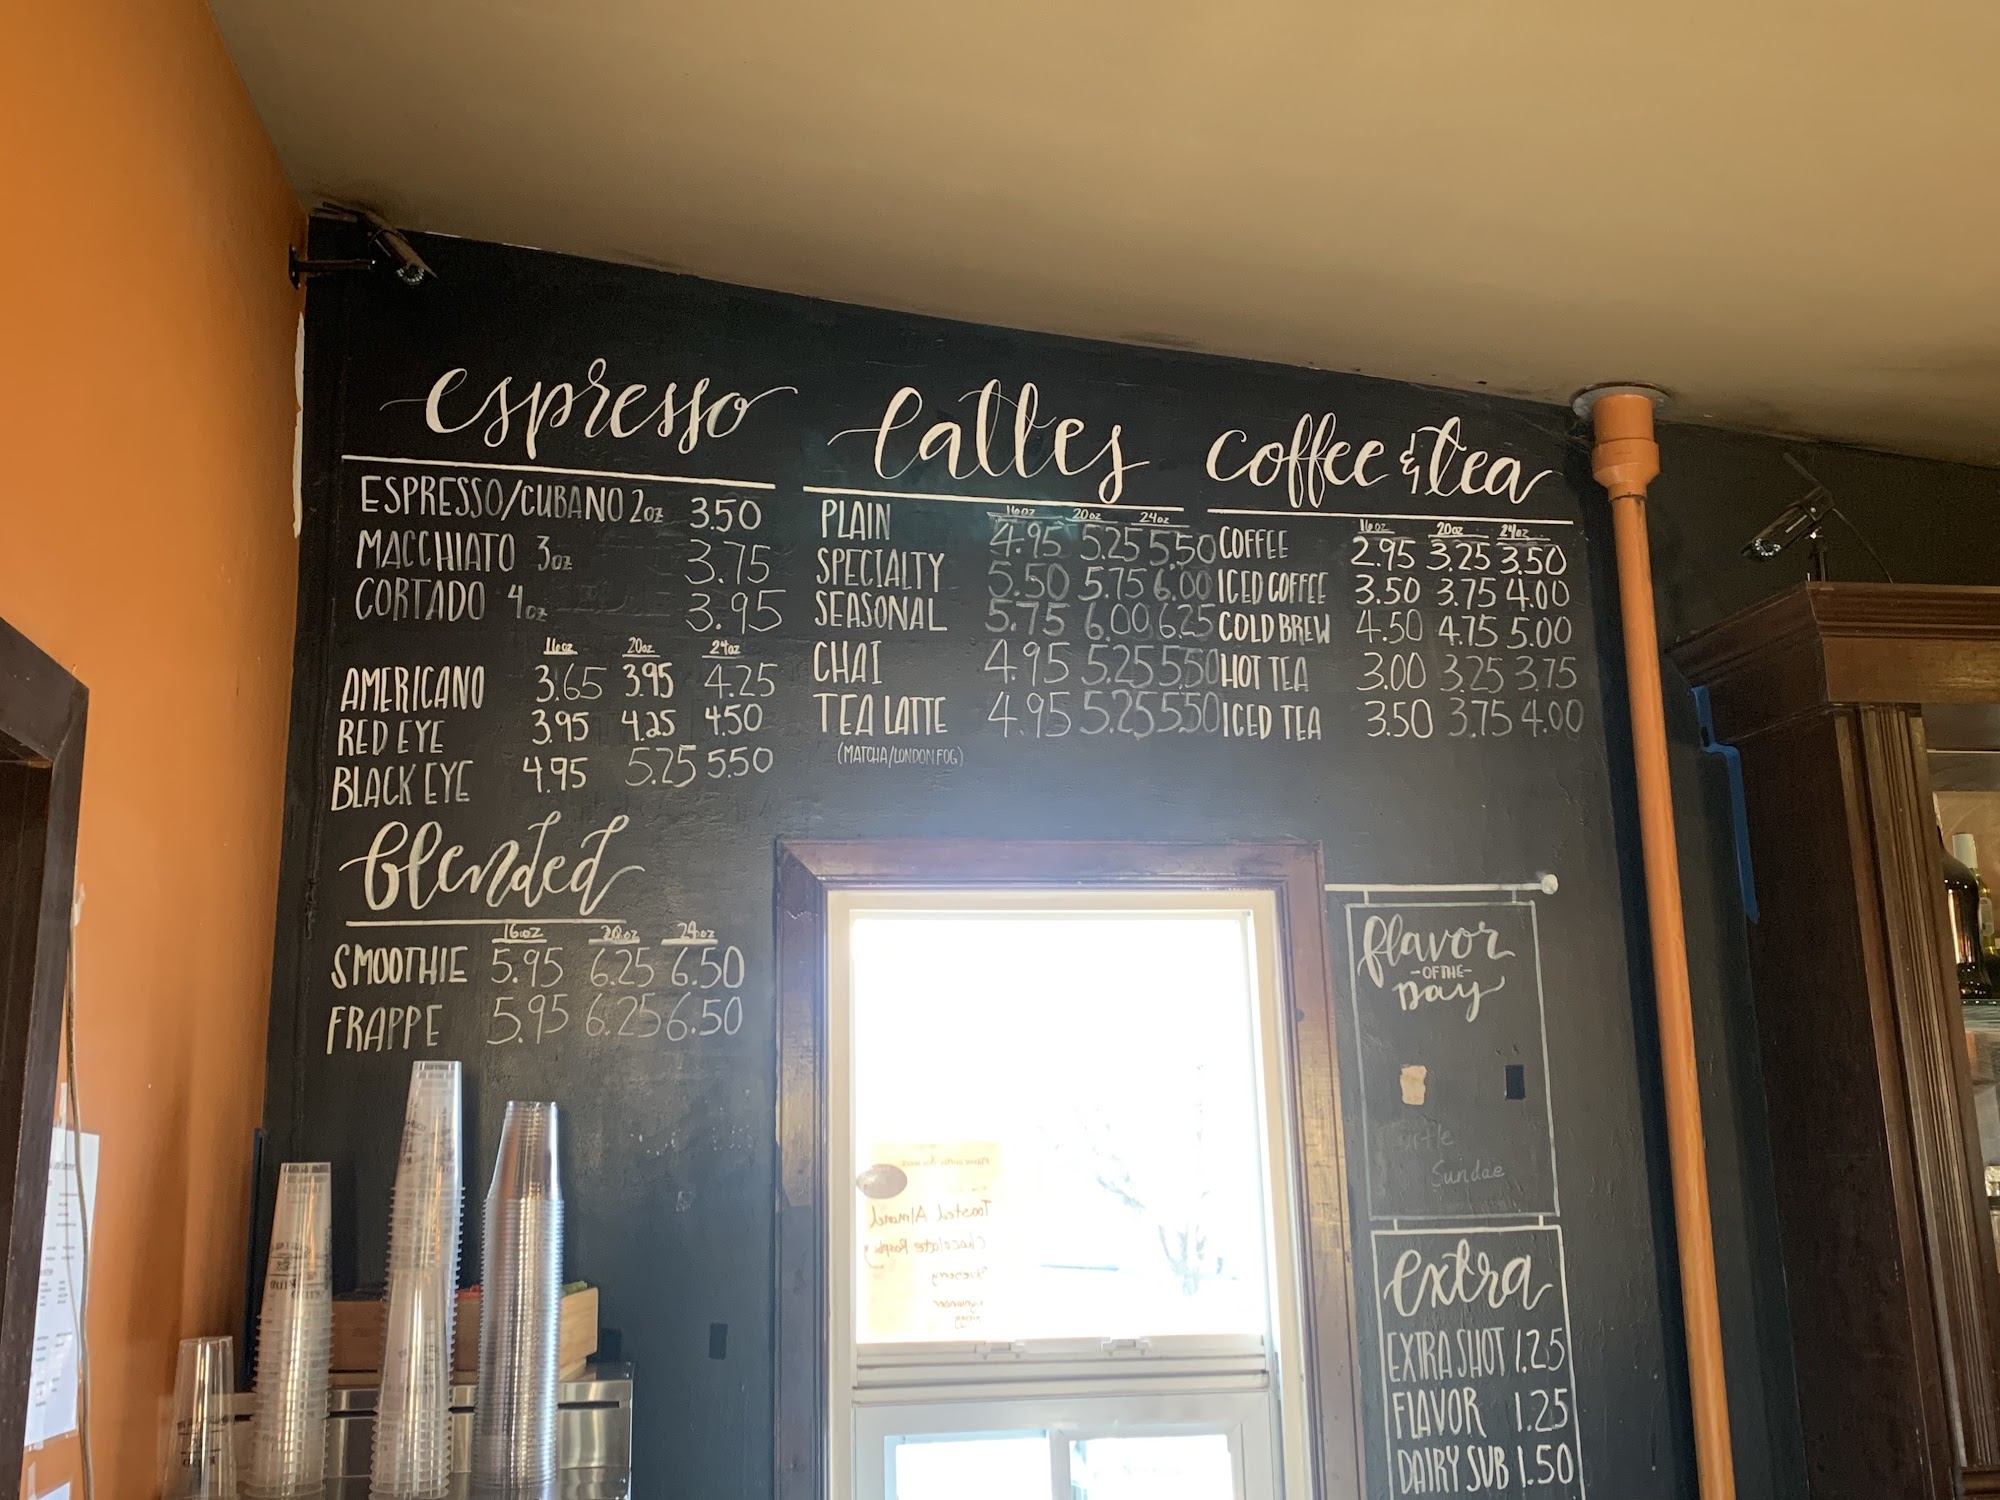 espresso
ESPRESSO/CUBANO 2oz 3.50
MACCHIATO 3oz 3.75
CORTADO 4oz 3.95
16oz 20oz 24oz
AMERICANO 3.65 3.95 4.25
RED EYE 3.95 4.25 4.50
BLACK EYE 4.95 5.25 5.50
blended
16oz 20oz 24oz
SMOOTHIE 5.95 6.25 6.50
FRAPPE 5.95 6.25 6.50
lattes
16oz 20oz 24oz
PLAIN 4.95 5.25 5.50
SPECIALTY 5.50 5.75 6.00
SEASONAL 5.75 6.00 6.25
CHAI 4.95 5.25 5.50
TEA LATTE 4.95 5.25 5.50
(MATCHA/LONDON FOG)
coffee & tea
16oz 20oz 24oz
COFFEE 2.95 3.25 3.50
ICED COFFEE 3.50 3.75 4.00
COLD BREW 4.50 4.75 5.00
HOT TEA 3.00 3.25 3.75
ICED TEA 3.50 3.75 4.00
flavor
-OF THE-
Day
Sundae
extra
EXTRA SHOT 1.25
FLAVOR 1.25
DAIRY SUB 1.50
Toasted Almond
Chocolate